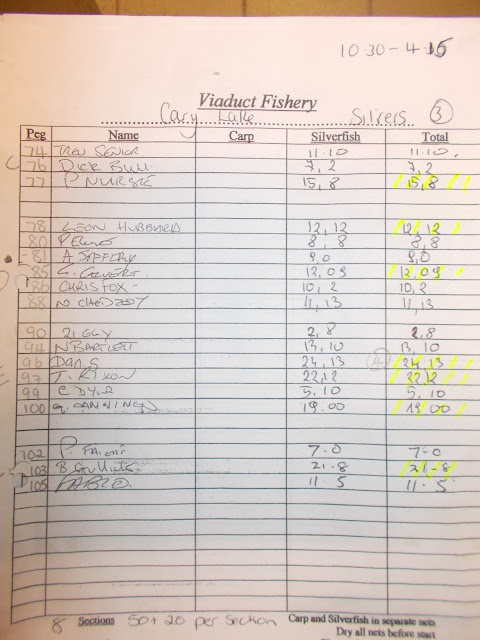 10.30 - 4.15
Viaduct Fishery
Cary Lake Silvers 3
Peg Name Carp Silverfish Total
74 TREV SENIOR 11.10 11.10.
76 DICK BULL 7,2 7,2
77 P NURSE 15,8 15,8
78 LEON HUBBARD 12,12 12,12
80 8,8 8,8
81 A JEFFERY 9,0 9,0
85 12,09 12,09
86 CHRIS FOX 10,2 10,2
88 N CHEDZOY 11,13 11,13
90 ZIGGY 2,8 2,8
94 N BARTLETT 13,10 13,10
96 DAN S 24,13 24,13
97 T. RIXON 22,12 22,12
99 C DYER 5,10 5,10
100 CANNINGS 19.00 19.00
102 P. 7-0 7-0
103 B 21-8 21-8
105 PABLO 11-5 11-5
8 Sections 50+20 per Section Carp and Silverfish in separate nets
Dry all nets before start